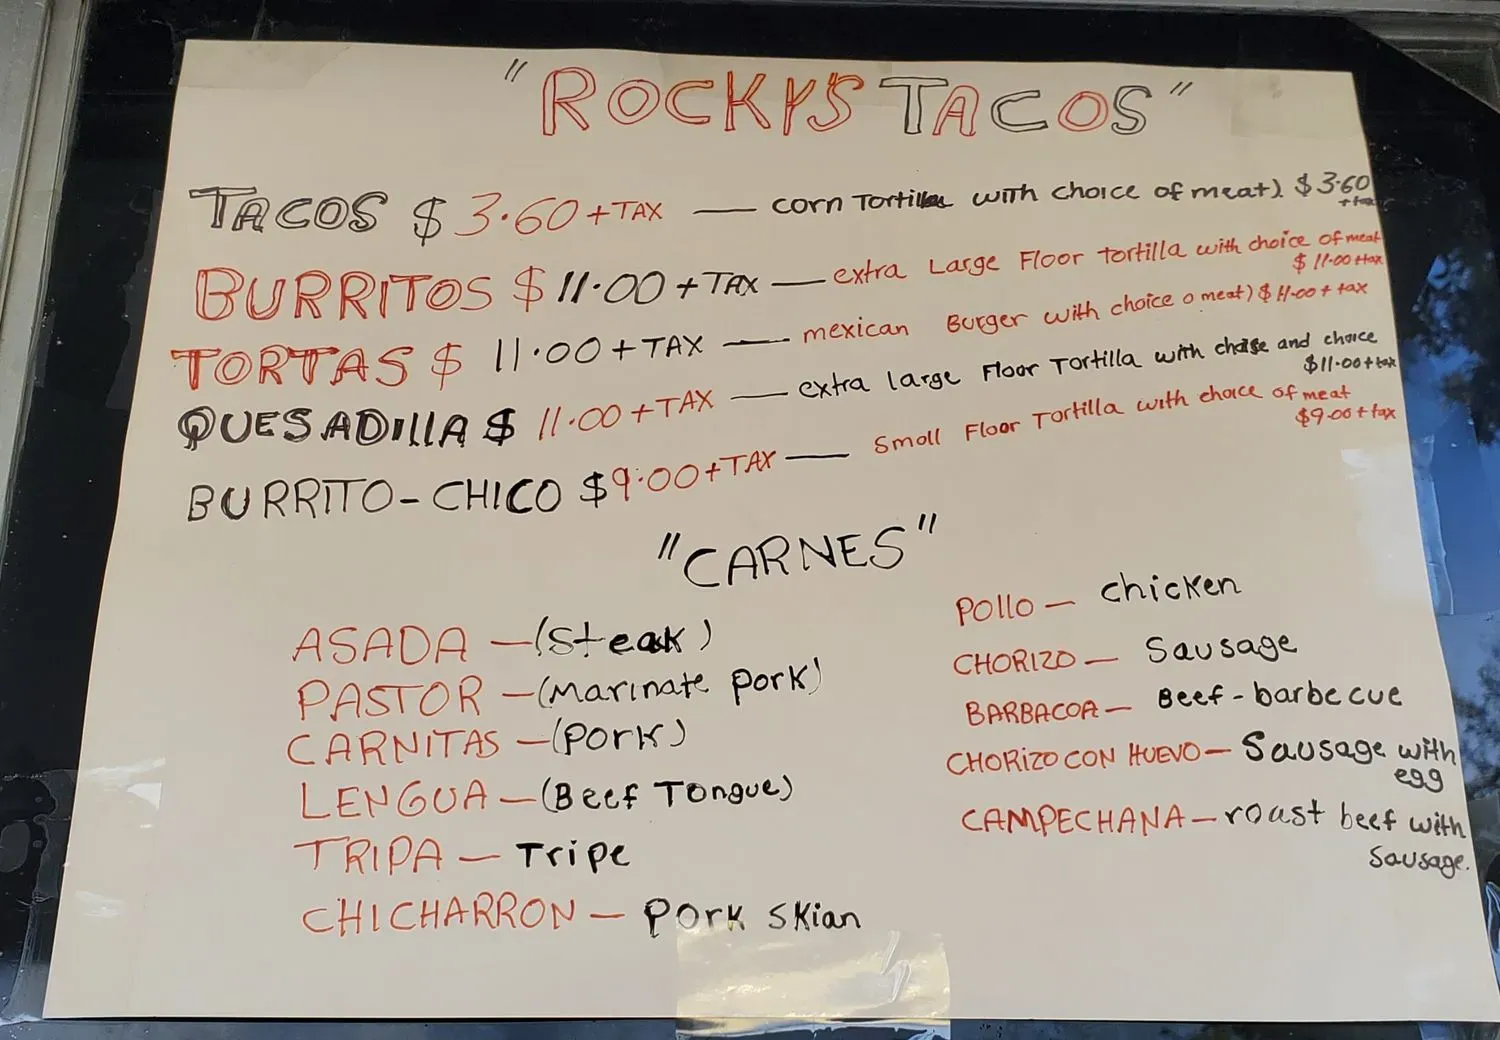 "ROCKY'S TACOS"
TACOS $ 3.60 + TAX — corn Tortilla with choice of meat) $ 3.60
+ tax
BURRITOS $ 11.00 + TAX — extra Large Floor tortilla with choice of meat
$ 11.00 + tax
TORTAS $ 11.00 + TAX — mexican Burger with choice o meat) $ 11.00 + tax
QUESADILLA $ 11.00 + TAX — extra large Floor Tortilla with and choice
$11.00 + tax
BURRITO-CHICO $9.00 + TAX — Small Floor Tortilla with choice of meat
$9.00 + tax
"CARNES"
ASADA — (Steak)
PASTOR — (Marinate pork)
CARNITAS — (pork)
LENGUA — (Beef Tongue)
TRIPA — Tripe
CHICHARRON — pork skian
POLLO — chicken
CHORIZO — Sausage
BARBACOA — Beef-barbecue
CHORIZO CON HUEVO — Sausage with
egg
CAMPECHANA — roast beef with
Sausage.